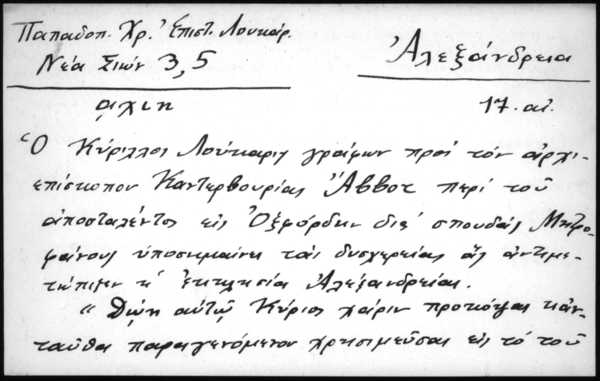 Παπαδοπ. Χρ. Ἐπιστ. Λουκάρ.
Νέα Σιών 3,5
αρχιπ
Ἀλεξάνδρεια
17. αἰ.
Ὁ Κύριλλος Λούκαρις γράφων πρὸς τὸν ἀρχι-
επίσκοπον Καντερβουρίας Ἄββοτ περὶ τοῦ
ἀποσταλέντος εἰς Ὀξφόρδην διὰ σπουδὰς Μητρο-
φάνους ὑποσημαίνει τὰς δυσχερείας ἃς ἀντιμε-
τώπιζεν ἡ ἐκκλησία Ἀλεξανδρείας.
" Δῴη αὐτῷ Κύριος χάριν προκόψαι κἀν-
ταῦθα παραγενόμενον χρησιμεῦσαι εἰς τὸ τοῦ